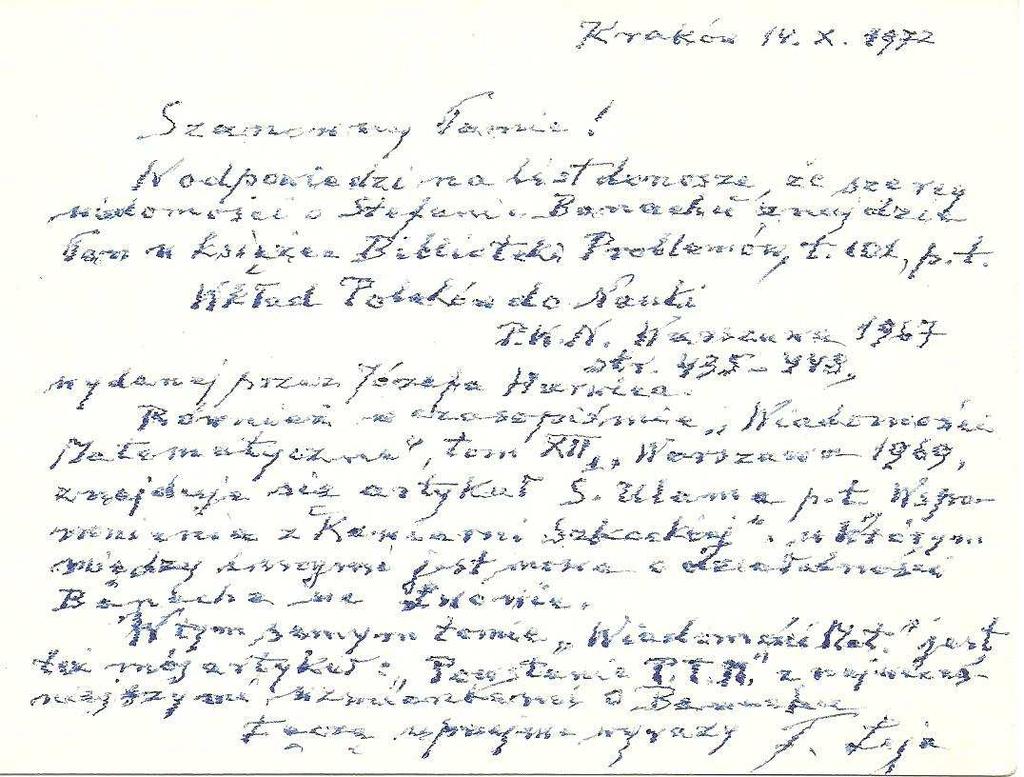 Kraków 14. X. 1972
Szanowny Panie!
W odpowiedzi na list donoszę, że szereg
wiadomości o Stefanie Banachu znajdzie
Pan w książce Biblioteki Problemów, t. 101, p.t.
Wkład Polaków do Nauki
P.W.N. Warszawa 1967
str. 435-443,
wydanej przez Józefa Hurwica.
Również w czasopiśmie „Wiadomości
Matematyczne", tom XII, Warszawa 1969,
znajduje się artykuł S. Ulama p.t. Wspo-
mnienia z Kawiarni Szkockiej", w którym
między innymi jest mowa o działalności
Banacha we Lwowie.
W tym samym tomie „Wiadomości Mat." jest
też mój artykuł: „Powstanie P.T.M." z
wzmiankami o Banachu
Łączę uprzejme wyrazy F. Leja